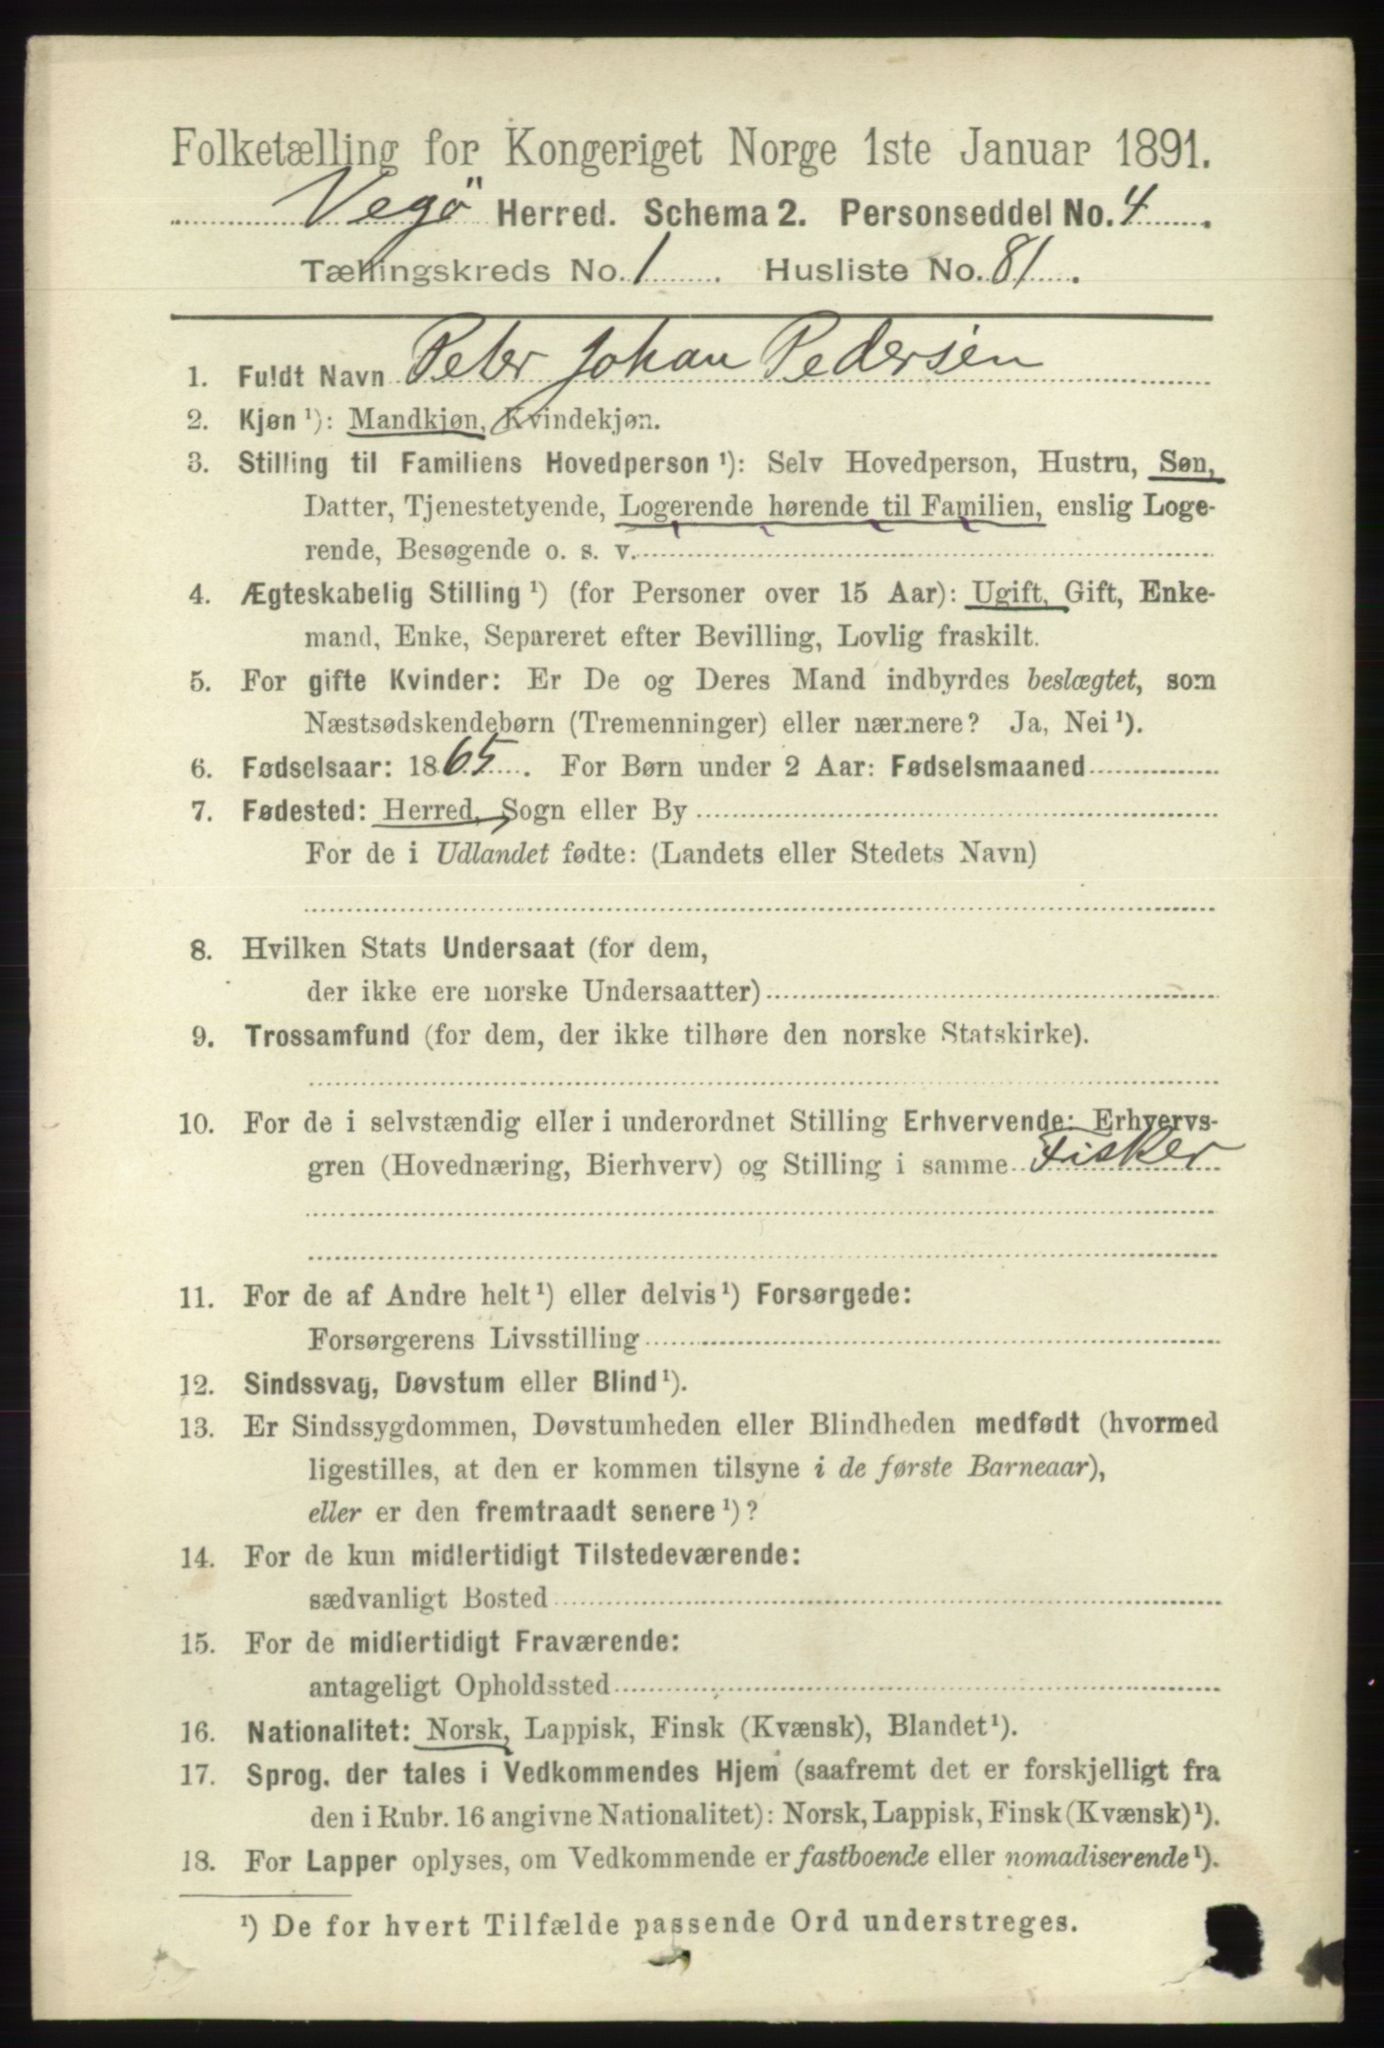 Folketælling for Kongeriget Norge 1ste Januar 1891.
Vegö Herred. Schema 2. Personseddel No. 4.
Tællingskreds No. 1. Husliste No. 81.
1. Fuldt Navn Peter Johan Pedersen
2. Kjøn¹): Mandkjøn, Kvindekjøn.
3. Stilling til Familiens Hovedperson¹): Selv Hovedperson, Hustru, Søn,
Datter, Tjenestetyende, Logerende hørende til Familien, enslig Loge-
rende, Besøgende o. s. v.
4. Ægteskabelig Stilling¹) (for Personer over 15 Aar): Ugift, Gift, Enke-
mand, Enke, Separeret efter Bevilling, Lovlig fraskilt.
5. For gifte Kvinder: Er De og Deres Mand indbyrdes beslægtet, som
Næstsødskendebørn (Tremenninger) eller nærmere? Ja, Nei¹).
6. Fødselsaar: 1865. For Børn under 2 Aar: Fødselsmaaned
7. Fødested: Herred, Sogn eller By
For de i Udlandet fødte: (Landets eller Stedets Navn)
8. Hvilken Stats Undersaat (for dem,
der ikke ere norske Undersaatter)
9. Trossamfund (for dem, der ikke tilhøre den norske Statskirke).
10. For de i selvstændig eller i underordnet Stilling Erhvervende: Erhvervs-
gren (Hovednæring, Bierhverv) og Stilling i samme Fisker
11. For de af Andre helt¹) eller delvis¹) Forsørgede:
Forsørgerens Livsstilling
12. Sindssvag, Døvstum eller Blind¹).
13. Er Sindssygdommen, Døvstumheden eller Blindheden medfødt (hvormed
ligestilles, at den er kommen tilsyne i de første Barneaar),
eller er den fremtraadt senere¹)?
14. For de kun midlertidigt Tilstedeværende:
sædvanligt Bosted
15. For de midlertidigt Fraværende:
antageligt Opholdssted
16. Nationalitet: Norsk, Lappisk, Finsk (Kvænsk), Blandet¹).
17. Sprog, der tales i Vedkommendes Hjem (saafremt det er forskjelligt fra
den i Rubr. 16 angivne Nationalitet): Norsk, Lappisk, Finsk (Kvænsk)¹).
18. For Lapper oplyses, om Vedkommende er fastboende eller nomadiserende¹).
¹) De for hvert Tilfælde passende Ord understreges.